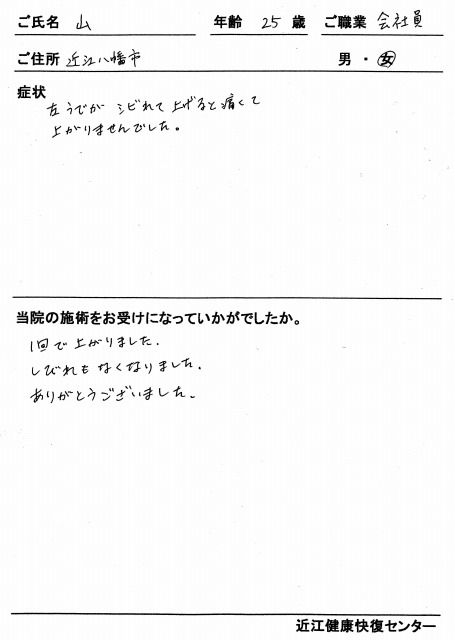 ご氏名 山 年齢 25 歳 ご職業 会社員
ご住所 近江八幡市 男・女
症状
左うでが シビれて 上げると痛くて
上がりませんでした。
当院の施術をお受けになっていかがでしたか。
1回で上がりました.
しびれもなくなりました.
ありがとうございました.
近江健康快復センター